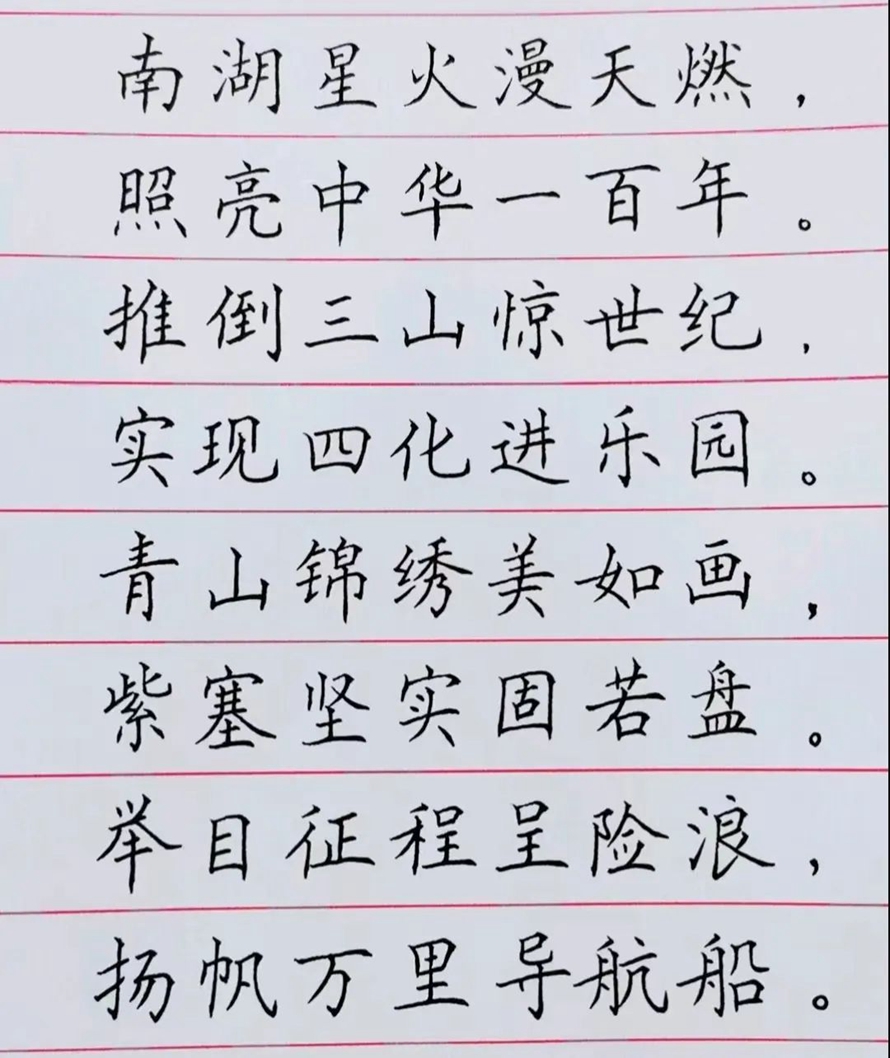 南湖星火漫天燃，
照亮中华一百年。
推倒三山惊世纪，
实现四化进乐园。
青山锦绣美如画，
紫塞坚实固若盘。
举目征程呈险浪，
扬帆万里导航船。